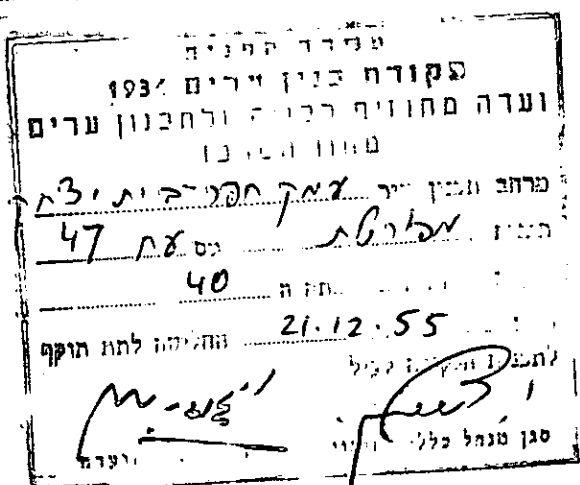 משרד הפנים
פקודת בנין ערים 1936
ועדה מחוזית לבניה ולתכנון ערים
מחוז המרכז
מרחב תכנון עיר עמק חפר-בית יצחק
תכנית מפורטת מס עח 47
40
21.12.55 החליטה לתת תוקף
לתכנית הנקראת לעיל
סגן מנהל כללי
הועדה